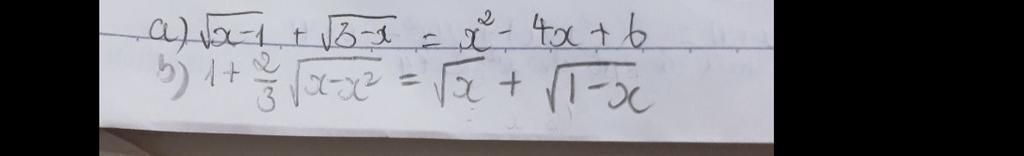 a) √x-1 + √3-x = x² - 4x + 6
b) 1 + 2/3 √x-x² = √x + √1-x